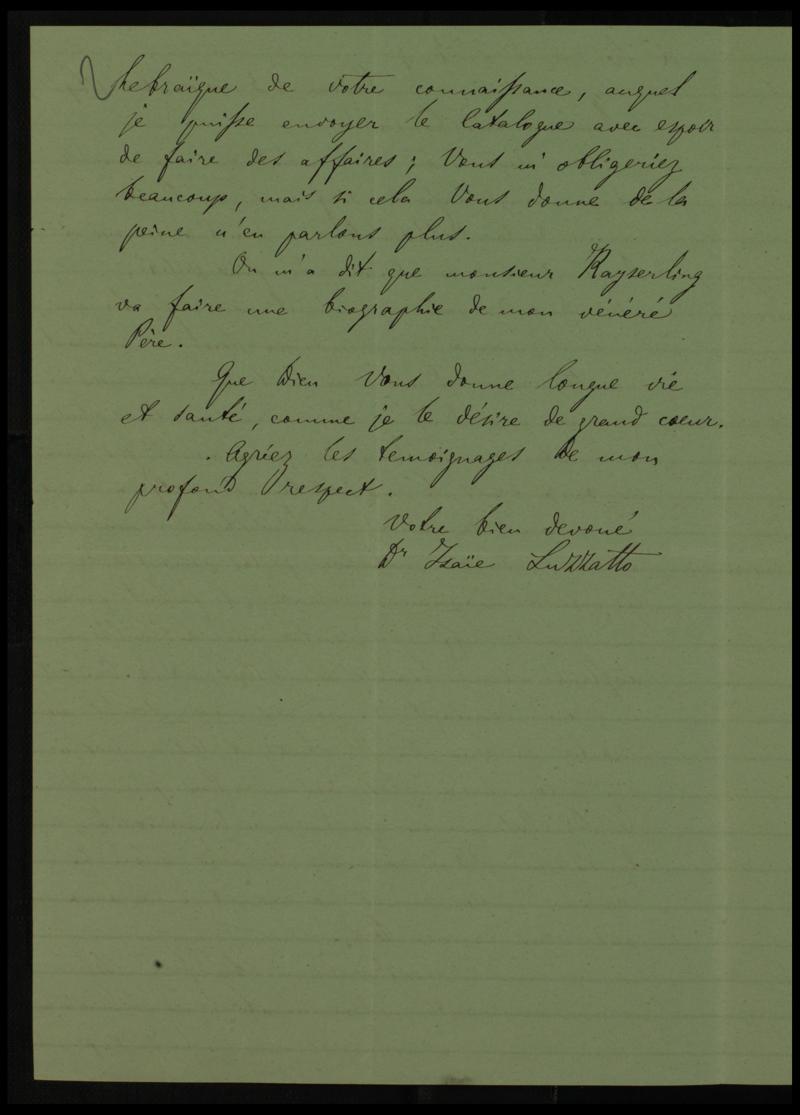 hebraïque de votre connaissance, auquel
je puisse envoyer le Catalogue avec espoir
de faire des affaires; Vous m'obligeriez
beaucoup, mais si cela Vous donne de la
peine n'en parlons plus.
On m'a dit que monsieur Kayserling
va faire une biographie de mon vénéré
Père.
Que Dieu Vous donne longue vie
et santé, comme je le désire de grand coeur.
Agréez les temoignages de mon
profond respect.
Votre bien devoué
Dr Isaïe Luzzatto